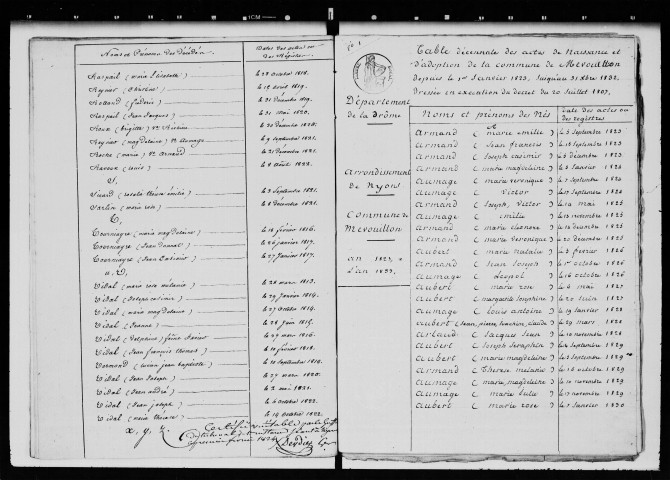 Noms et Prénoms des Décédés
Dates des actes ou des Registres
Raspail (marie Elisabeth) le 28 octobre 1818.
Reynier (Christine) le 18 avril 1819.
Rolland (fréderic) le 31 décembre 1819.
Raspail (Jean Jacques) le 31 mai 1820.
le 20 décembre 1820.
Reynier (magdelaine) le 9 septembre 1821.
Roche (marie) ve Arnaud le 21 décembre 1821.
(Louis) le 8 août 1822.
S,
le 3 septembre 1821.
(marie rose) le 8 décembre 1821.
T,
Tourniayre (marie magdelaine) le 16 février 1816.
Tourniayre (Jean Donnat) le 26 janvier 1817.
Tourniayre (Jean Antoine) le 27 janvier 1817.
u, V,
Vidal (marie rose mélanie) le 28 mars 1813.
Vidal (Joseph casimir) le 29 janvier 1814.
Vidal (marie magdelaine) le 27 octobre 1814.
Vidal (Jeanne) le 28 juin 1815.
Vidal (Delphine) le 27 mars 1816.
Vidal (Jean françois thomas) le 10 février 1818.
(Jean baptiste) le 10 septembre 1819.
Vidal (Jean Joseph) le 27 mars 1820.
Vidal (Jean andré) le 2 mai 1821.
Vidal (Jean Joseph) le 6 octobre 1822.
Vidal (marie thérèse) le 14 octobre 1822.
x, y, z
Certifié véritable par le
Département de la Drôme
Arrondissement de Nyons
Commune de Mévouillon
an 1823, à l'an 1833,
Table décennale des actes de Naissance et
d'adoption de la commune de Mévouillon
depuis le 1er Janvier 1823, jusqu'au 31 Xbre 1832.
Dressée en exécution du décret du 20 Juillet 1807.
Noms et prénoms des Nés
Date des actes ou des registres
Armand (marie émilie) le 5 septembre 1823
Armand (Jean françois) le 18 septembre 1823
Armand (Joseph casimir) le 8 décembre 1823
Armand (marie magdelaine) le 3 Janvier 1824
Aumage (marie véronique) le 7 septembre 1824
Aumage (victor) le 17 septembre 1824
Armand (Joseph, victor) le 12 mai 1825
Aumage (émilie) le 13 novembre 1825
Armand (marie éléonore) le 12 décembre 1825
Armand (marie véronique) le 20 décembre 1825
Aubert (marie natalie) le 5 février 1826
Armand (Jean Joseph) le 1er octobre 1826
Aumage (Léopol) le 16 octobre 1826
Aubert (marie rose) le 6 mai 1827
Aubert (marguerite Joséphine) le 20 Juin 1827
Aumage (Louis antoine) le 19 Janvier 1828
Aubert (Jean, pierre, Joachim, claude) le 29 mars 1828
Artaud (Jacques Jean) le 10 novembre 1828
Aubert (Joseph Séraphin) le 24 septembre 1829
Aubert (marie magdelaine) le 3 septembre 1829
Armand (Thérèse mélanie) le 18 octobre 1829
Aumage (marie magdelaine) le 10 novembre 1829
Aumage (marie Julie) le 17 novembre 1829
Aubert (marie rose) le 7 Janvier 1830